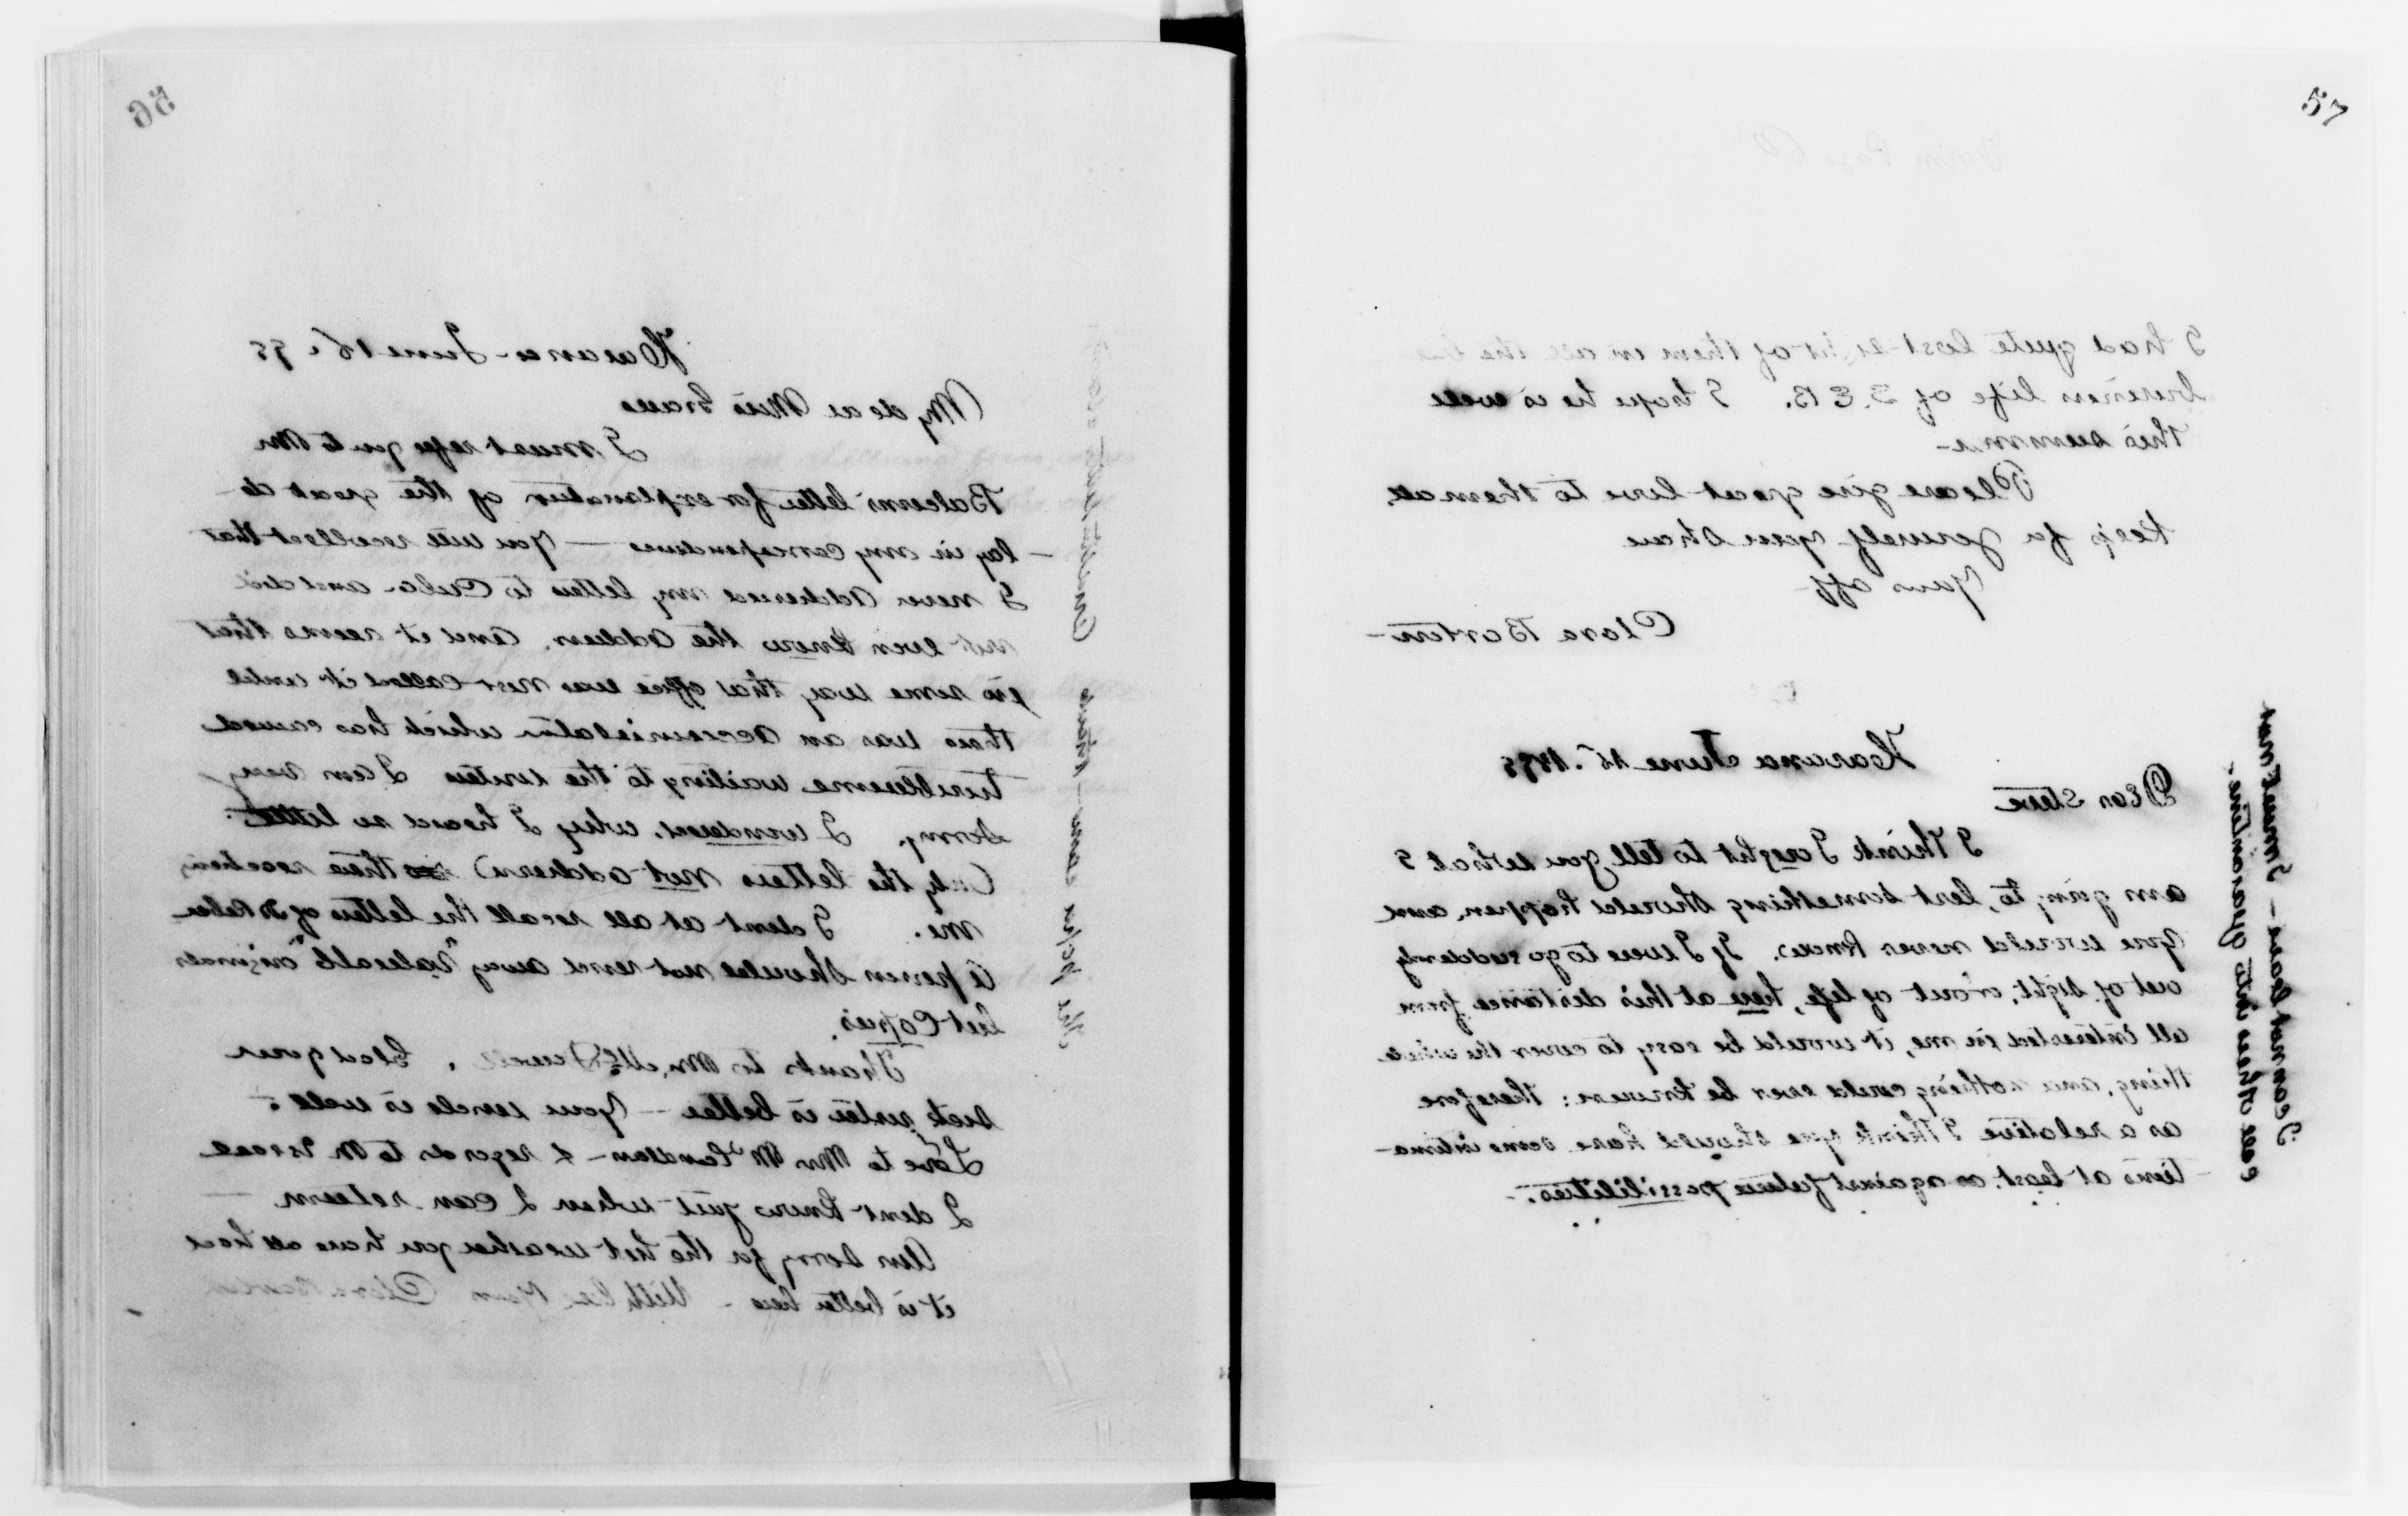 56
Havana June 16, 98
My dear Miss Graves
I must refer you to Mr
Balcoms letter for explanation of the great de
lay in my correspondence — You will recollect that
I never addressed my letters to Cuba and did
not even know the address, and it seems that
in some way that office was not called at until
there was an accumulation which has caused
troublesome waiting to the writers I am very
sorry. I wondered, why I heard so little
Only the letters not addressed there reaching
me. I dont at all recall the letters of
A person should not send away "valuable originals"
but Copies.
Thanks to Mr. McDowell. Glad your
sick sister is better — Your uncle is well
Love to Mrs & regards to Mr
I dont know just when I can return.
Am sorry for the hot weather you have all had
it is better here — With love Yours Clara Barton
57
From Page 60
I had quite lost sight of them in all the
business life of S. E. B. I hope he is well
this summer
Please give great love to them all.
Keep for yourself your share
Yours aff
Clara Barton
Havana June 16. 1898
Dear Steve
I think I ought to tell you what I
am going to, lest something should happen, and
you would never know. If I were to go suddenly
out of sight, or out of life, here at this distance from
all interested in me, it would be easy to cover the whole
thing, and nothing could ever be known: therefore
as a relative I think you should have some intima-
tions at least as against future possibilities.
I cannot leave — I must not
call others into quarantine.